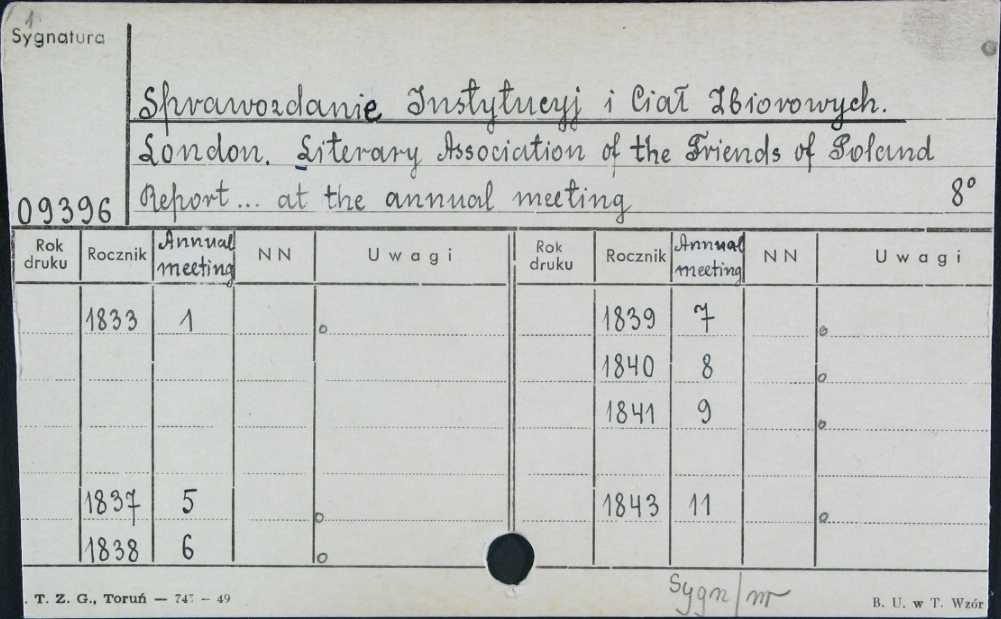 1
Sygnatura
Sprawozdanie Instytucyj i Ciał Zbiorowych.
London. Literary Association of the Friends of Poland
09396 Report... at the annual meeting 8°
Rok druku Rocznik Annual meeting NN Uwagi Rok druku Rocznik Annual meeting NN Uwagi
1833 1 1839 7
1840 8
1841 9
1837 5 1843 11
1838 6
Sygn/nr
. T. Z. G., Toruń — 747 — 49 B. U. w T. Wzór